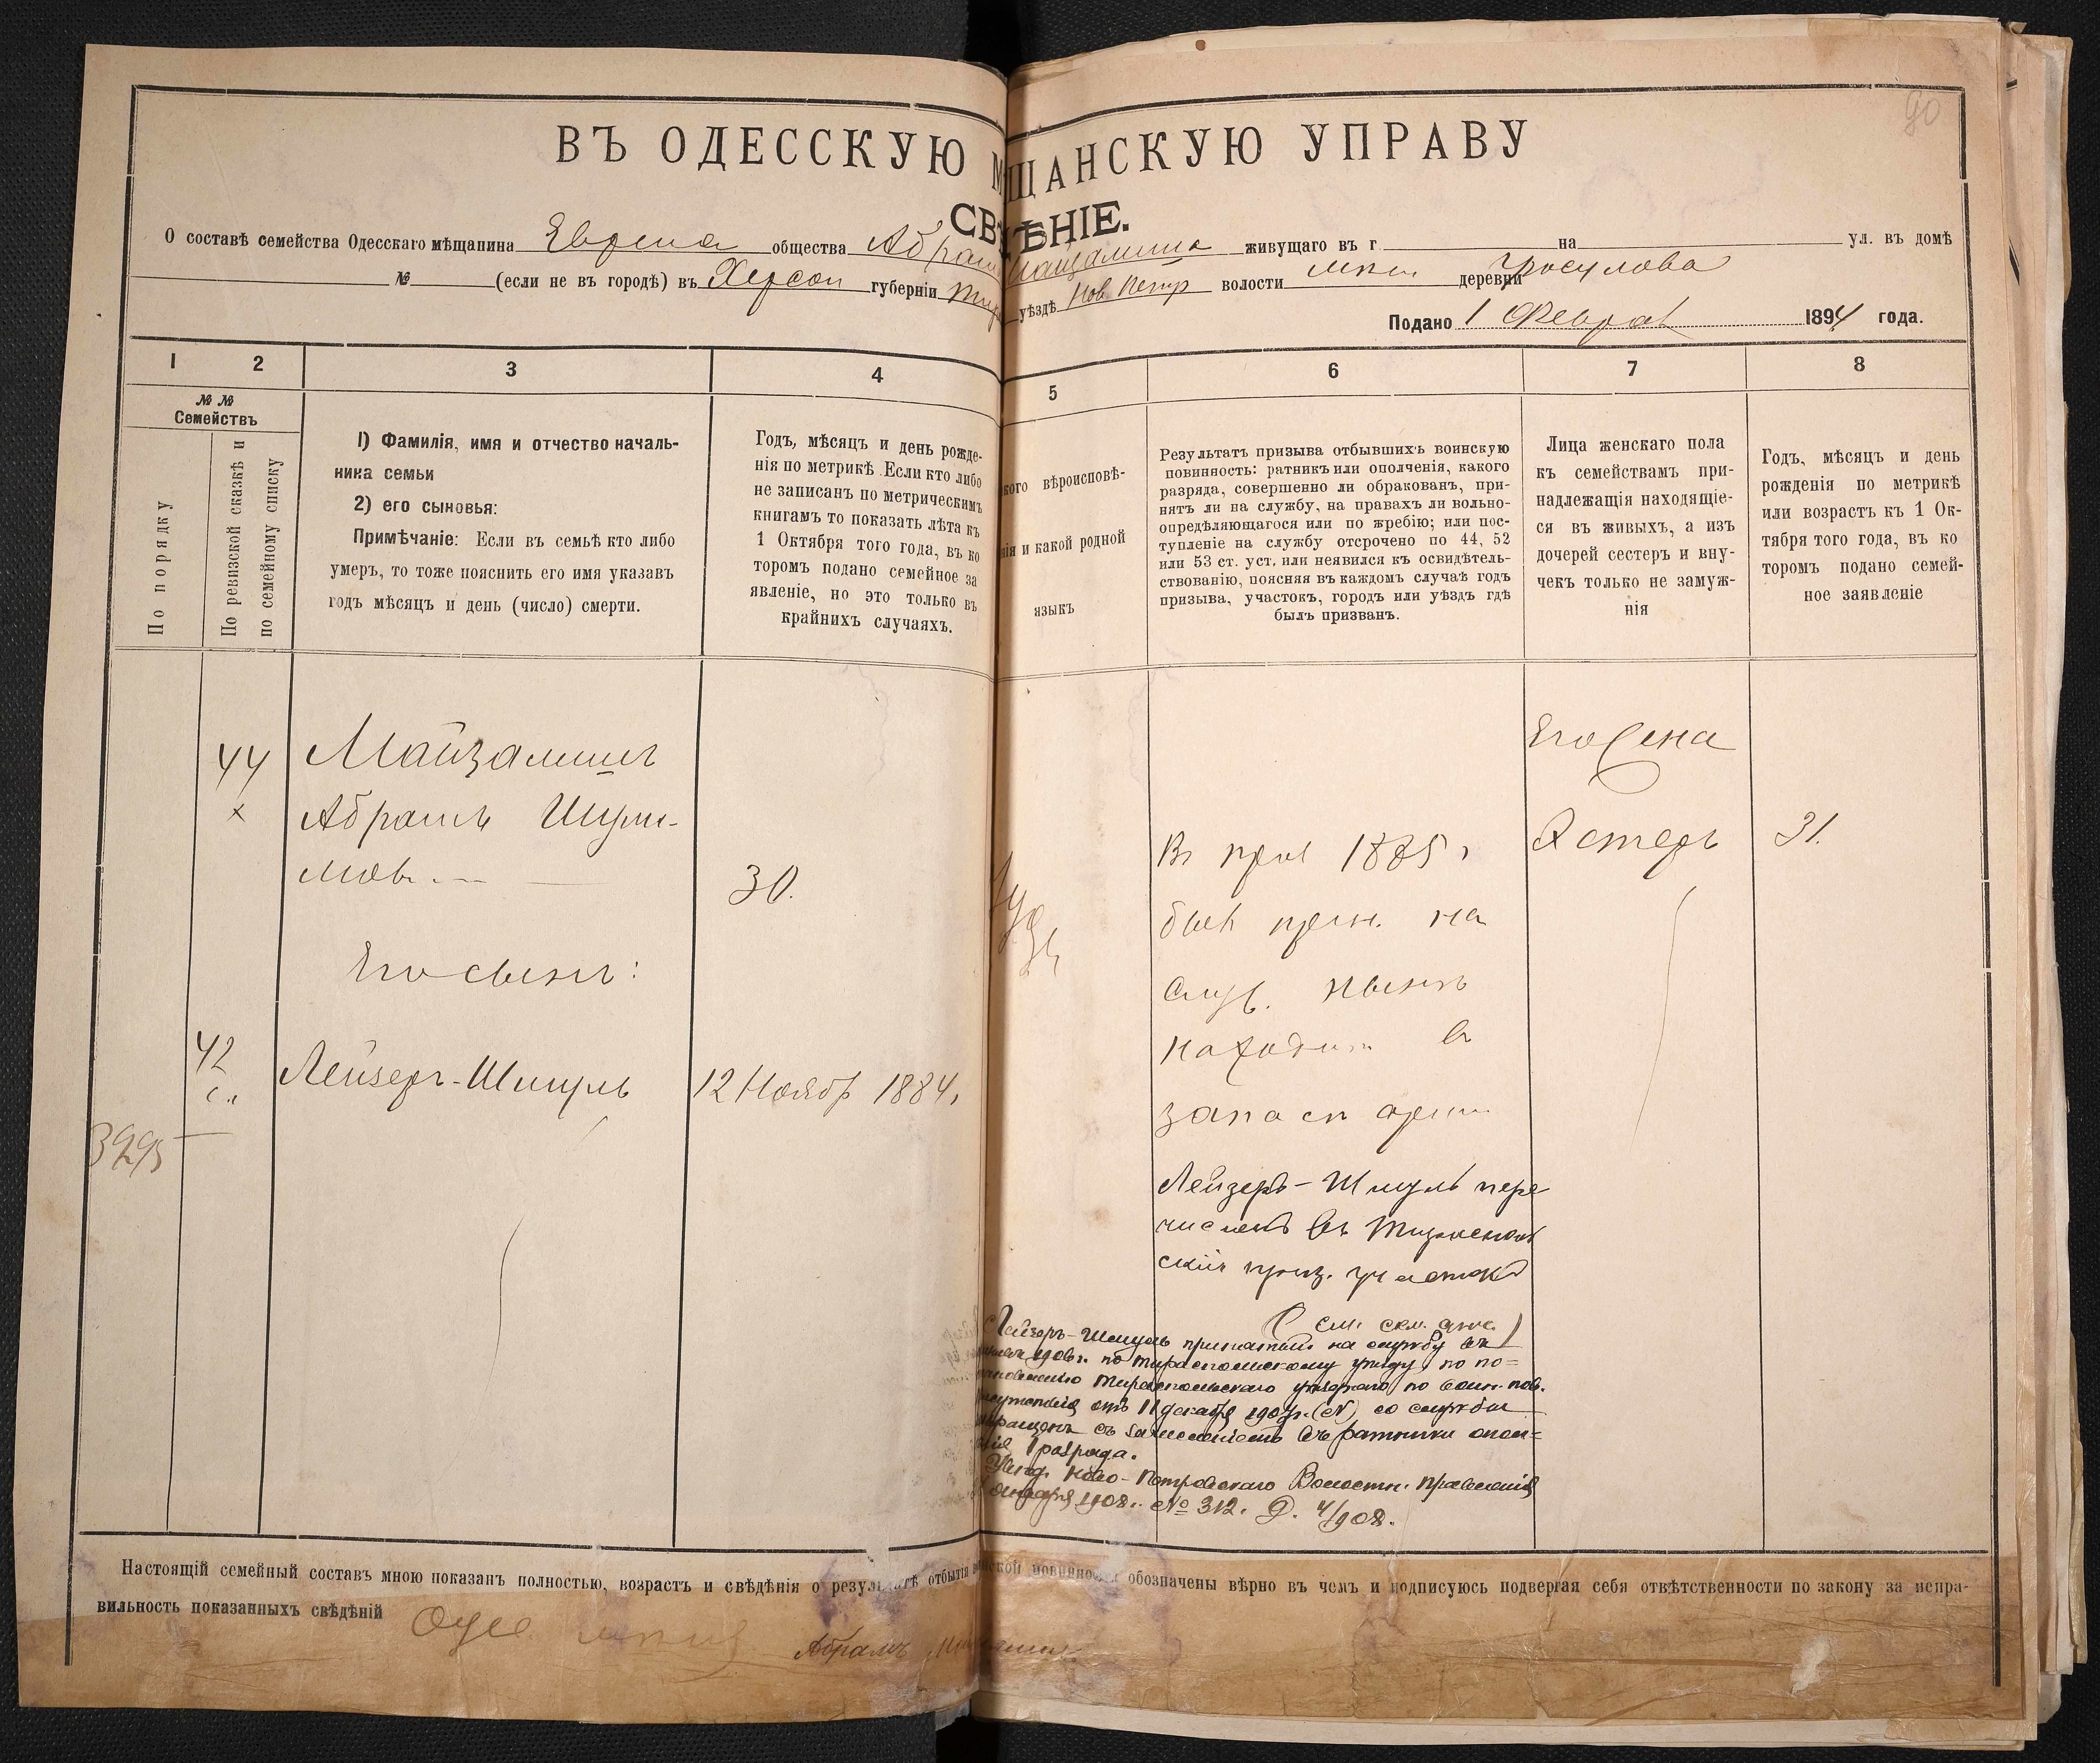 90
ВЪ ОДЕССКУЮ М ЩАНСКУЮ УПРАВУ
СВ ѢНІЕ.
О составѣ семейства Одесскаго мѣщанина Еврея общества Абрам живущаго въ г на ул. въ домѣ
№ (если не въ городѣ) въ Херсон губерніи Тир уѣздѣ Нов Петр волости деревни
Подано 1 Феврал 1894 года.
1 2 3 4 5 6 7 8
№ №
Семействъ
По порядку
По ревизской сказкѣ и
по семейному списку
1) Фамилія, имя и отчество началь-
ника семьи
2) его сыновья:
Примѣчаніе: Если въ семьѣ кто либо
умеръ, то тоже пояснить его имя указавъ
годъ мѣсяцъ и день (число) смерти.
Годъ, мѣсяцъ и день рожде-
нія по метрикѣ. Если кто либо
не записанъ по метрическимъ
книгамъ то показать лѣта къ
1 Октября того года, въ ко
торомъ подано семейное за
явленіе, но это только въ
крайнихъ случаяхъ.
кого вѣроисповѣ-
нія и какой родной
языкъ
Результатъ призыва отбывшихъ воинскую
повинность: ратникъ или ополченія, какого
разряда, совершенно ли обракованъ, при-
нятъ ли на службу, на правахъ ли вольно-
опредѣляющагося или по жребію; или пос-
тупленіе на службу отсрочено по 44, 52
или 53 ст. уст. или неявился къ освидѣтель-
ствованію, поясняя въ каждомъ случаѣ годъ
призыва, участокъ, городъ или уѣздъ гдѣ
былъ призванъ.
Лица женскаго пола
къ семействамъ при-
надлежащія находящіе-
ся въ живыхъ, а изъ
дочерей сестеръ и вну-
чекъ только не замуж-
нія
Годъ, мѣсяцъ и день
рожденія по метрикѣ
или возрастъ къ 1 Ок-
тября того года, въ ко
торомъ подано семей-
ное заявленіе
44
Майзалишъ
Абрамъ
30.
Его сынъ:
42
Лейзеръ-Шмуль
12 Ноябр 1884.
3295
1885
на
нынѣ
в
запас
Лейзеръ-Шмуль пере
численъ въ
приз. участокъ
Лейзеръ-Шмуль принятый на службу въ
1906 г. по Тираспольскому уѣзду, по по=
Тираспольскаго уѣзднаго по воин. пов.
отъ 11 декабря 1907 г. (№) со службы
съ зачисленіемъ въ ратники опол=
1 разряда.
Увѣд. Ново-Петровскаго Волостн. Правленія
Января 1908 г. № 312. Д. 4/908.
Его жена
Эстеръ
31.
Настоящій семейный составъ мною показанъ полностью, возрастъ и свѣдѣнія о результатѣ отбытія воинской повинности обозначены вѣрно въ чемъ и подписуюсь подвергая себя отвѣтственности по закону за непра-
вильность показанныхъ свѣдѣній
Абрамъ